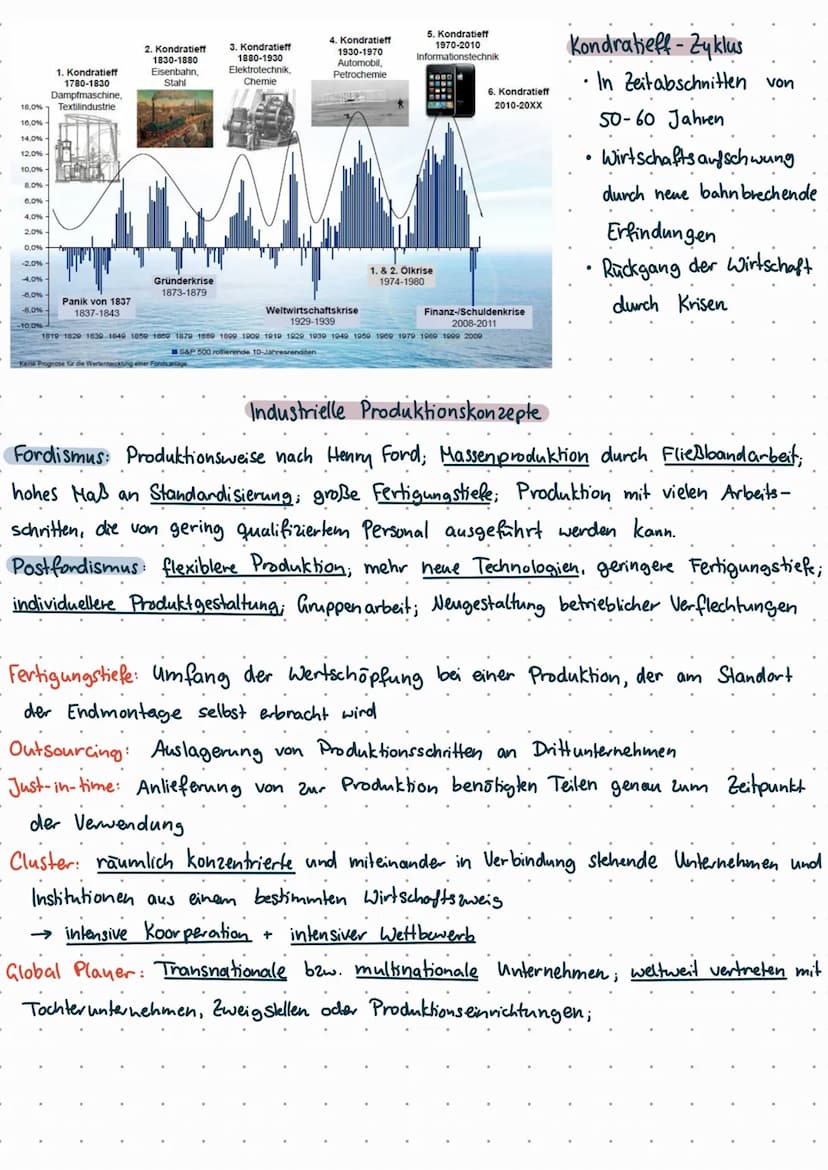 1. Kondratieff
1780-1830
Dampfmaschine,
Textilindustrie
2. Kondratieff
1830-1880
Eisenbahn,
Stahl
3. Kondratieff
1880-1930
Elektrotechnik,
Chemie
4. Kondratieff
1930-1970
Automobil,
Petrochemie
5. Kondratieff
1970-2010
Informationstechnik
6. Kondratieff
2010-20XX
18,0%
16,0%
14,0%
12,0%
10,0%
8,0%
6,0%
4,0%
2,0%
0,0%
-2,0%
-4,0%
-6,0%
-8,0%
-10,0%
Panik von 1837
1837-1843
Gründerkrise
1873-1879
Weltwirtschaftskrise
1929-1939
1. & 2. Ölkrise
1974-1980
Finanz-/Schuldenkrise
2008-2011
1819 1829 1839 1849 1859 1869 1879 1889 1899 1909 1919 1929 1939 1949 1959 1969 1979 1989 1999 2009
S&P 500 rollierende 10-Jahresrenditen
Keine Prognose für die Wertentwicklung einer Fondsanlage
Kondratieff-Zyklus
• In Zeitabschnitten von
50-60 Jahren
• Wirtschaftsaufschwung
durch neue bahnbrechende
Erfindungen
• Rückgang der Wirtschaft
durch Krisen
Industrielle Produktionskonzepte
Fordismus: Produktionsweise nach Henry Ford; Massenproduktion durch Fließbandarbeit;
hohes Maß an Standardisierung; große Fertigungstiefe; Produktion mit vielen Arbeits-
schritten, die von gering qualifiziertem Personal ausgeführt werden kann.
Postfordismus: flexiblere Produktion; mehr neue Technologien, geringere Fertigungstiefe;
individuellere Produktgestaltung; Gruppenarbeit; Neugestaltung betrieblicher Verflechtungen
Fertigungstiefe: Umfang der Wertschöpfung bei einer Produktion, der am Standort
der Endmontage selbst erbracht wird
Outsourcing: Auslagerung von Produktionsschritten an Drittunternehmen
Just-in-time: Anlieferung von zur Produktion benötigten Teilen genau zum Zeitpunkt
der Verwendung
Cluster: räumlich konzentrierte und miteinander in Verbindung stehende Unternehmen und
Institutionen aus einem bestimmten Wirtschaftszweig
→ intensive Koorperation + intensiver Wettbewerb
Global Player: Transnationale bzw. multinationale Unternehmen; weltweit vertreten mit
Tochterunternehmen, Zweigstellen oder Produktionseinrichtungen;